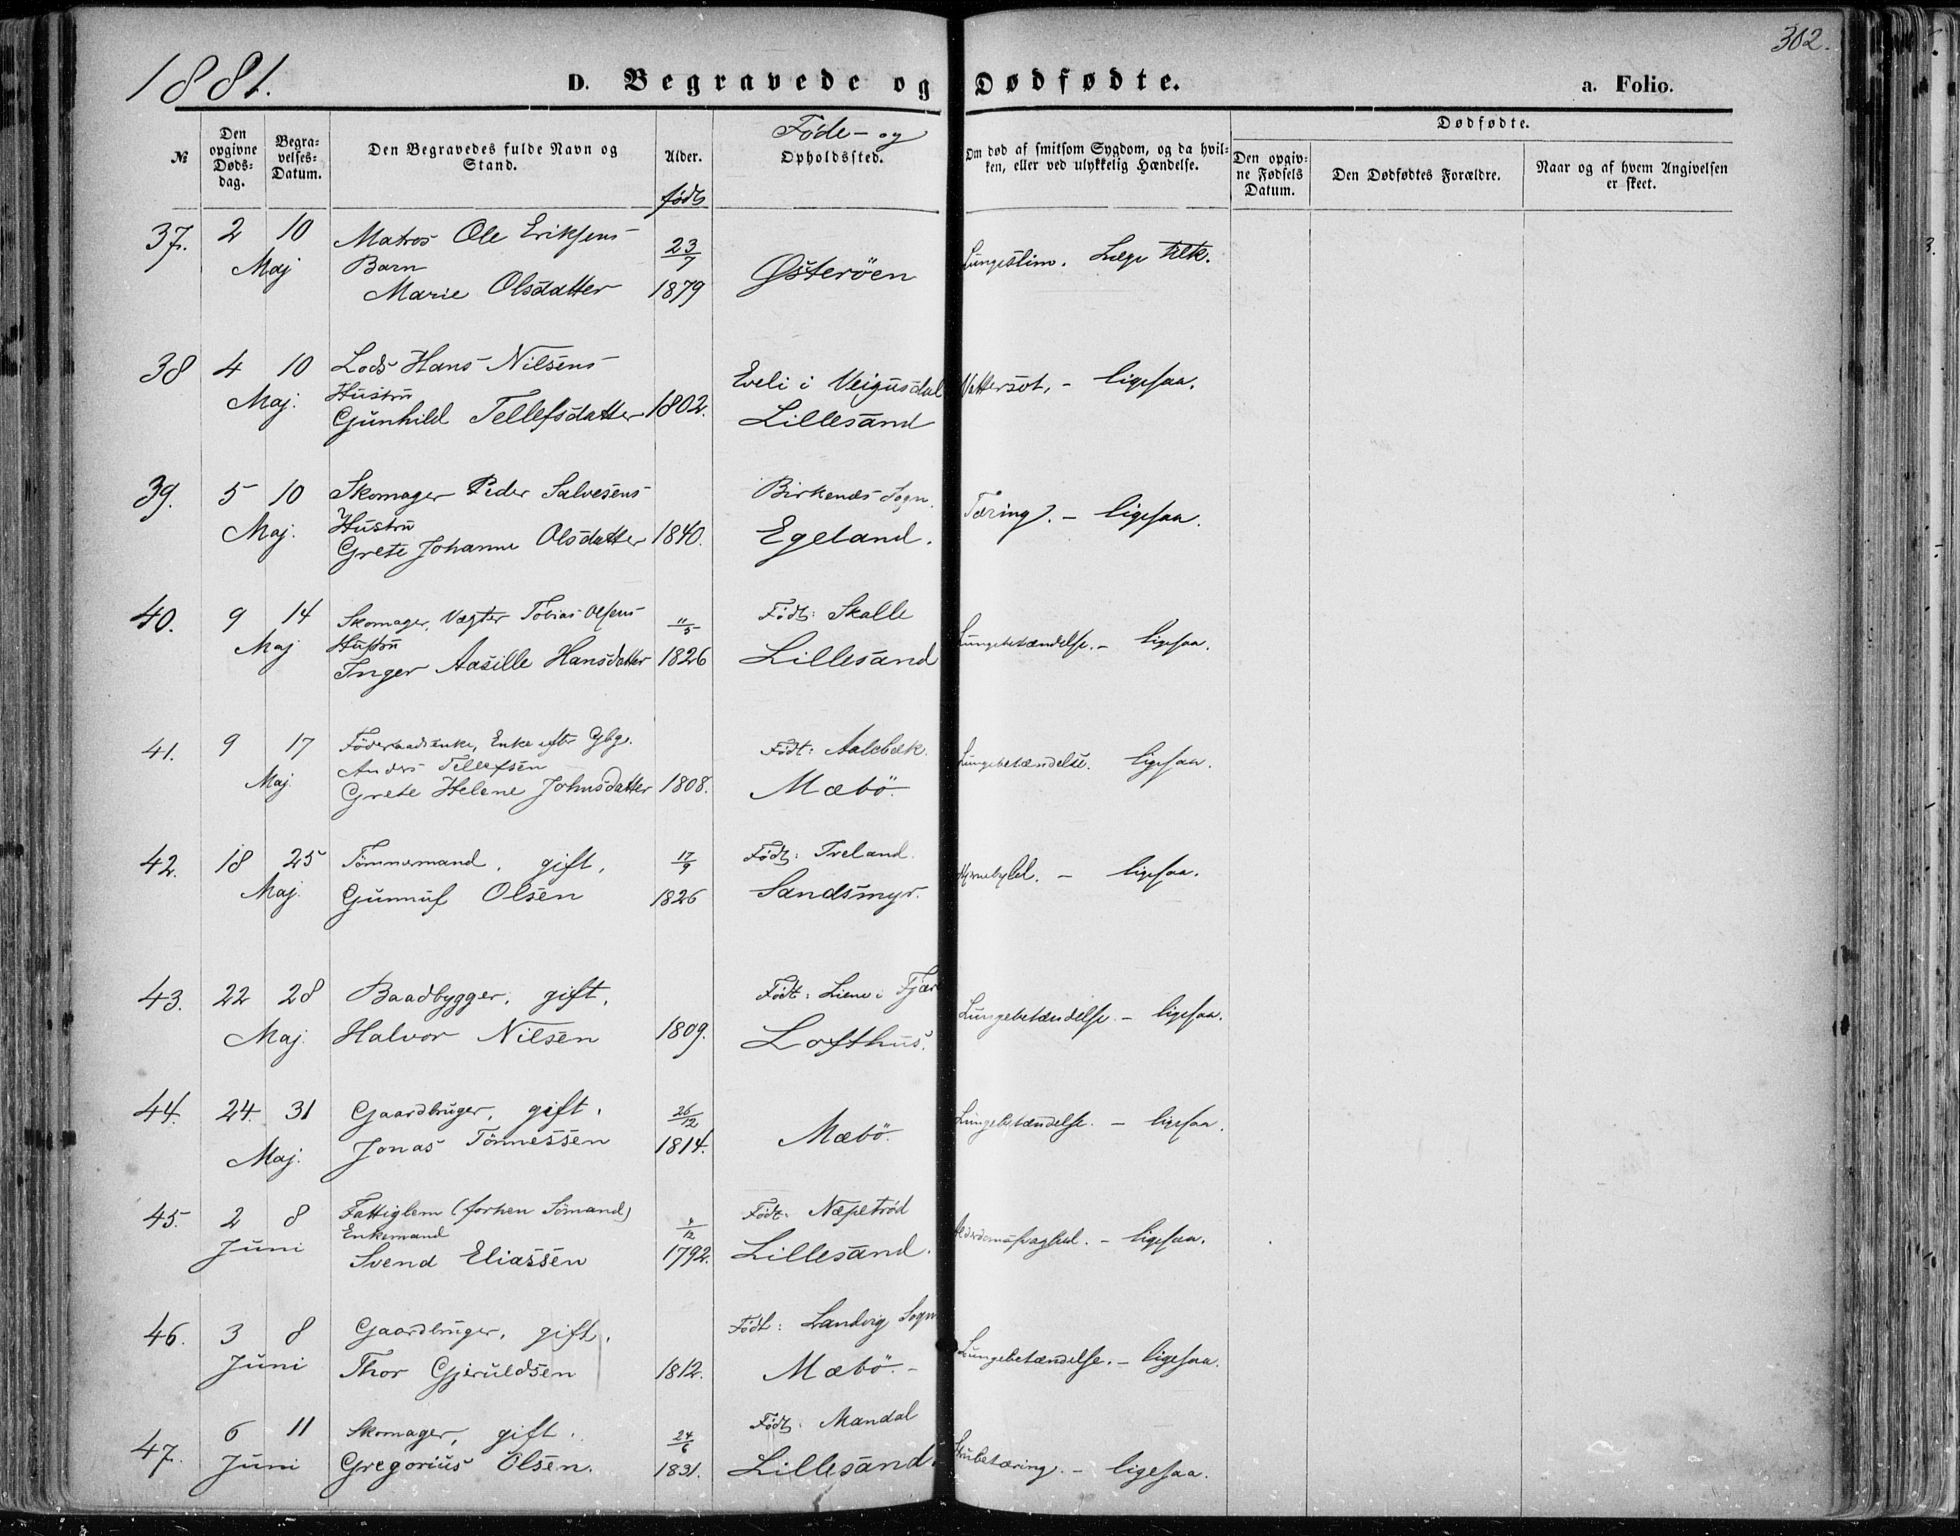 302.
1881.
D. Begravede og Dødfødte.
a. Folio.
№
Den opgivne Døds-dag.
Begra-velses-Datum.
Den Begravedes fulde Navn og Stand.
Alder.
født
Føde- og
Opholdssted.
Om død af smitsom Sygdom, og da hvil-ken, eller ved ulykkelig Hændelse.
Dødfødte.
Den opgiv-ne Fødsels Datum.
Den Dødfødtes Forældre.
Naar og af hvem Angivelsen er skeet.
37. 2 10 Matros Ole Eriksens 23/7
Maj Barn Østerøen Lungeslim. Læge tilk.
Marie Olsdatter 1879
38 4 10 Lods Hans Nilsens Eveli i Veigusdal Vattersot, - ligesaa.
Maj. Hustru
Gunhild Tellefsdatter 1802. Lillesand
39. 5 10 Skomager Peder Salvesens Birkenæs Sogn. Tæring. - ligesaa.
Maj. Hustru
Grete Johanne Olsdatter 1840. Egeland.
40. 9 14 Skomager, Vægter Tobias Olsens 11/5 Født: Skalle
Maj Hustru Lungebetændelse. - ligesaa.
Inger Aasille Hansdatter 1826 Lillesand
41. 9 17 Föderaadsenke, Enke efter Gbgr. Født: Aalebæk. Lungebetændelse. ligesaa.
Maj. Anders Tellefsen
Grete Helene Johnsdatter 1808. Mæbö.
42. 18 25 Tömmermand, gift, 17/9 Født: Treland. Hjernebyld. - ligesaa.
Maj. Gunnuf Olsen 1826 Sandsmyr.
43. 22 28 Baadbygger, gift, Født: Liene i Fjære Lungebetændelse - ligesaa.
Maj. Halvor Nilsen 1809. Lofthus.
44. 24. 31 Gaardbruger, gift, 26/12 Lungebetændelse. - ligesaa.
Maj. Jonas Tönnessen 1814. Mæbö.
45. 2 8 Fattiglem (forhen Sömand) Født: Næpetröd
Juni Enkemand Alderdomssvaghed. - ligesaa.
Svend Eliassen 1792. Lillesand.
46. 3 8 Gaardbruger, gift, Født: Landvig Sogn
Juni Thor Gjeruldsen 1812. Mæbö. - Lungebetændelse. - ligesaa.
47. 6 11 Skomager, gift. 24/6 Født: Mandal
Juni Gregorius Olsen. 1831. Lillesand. Strubetæring. - ligesaa.